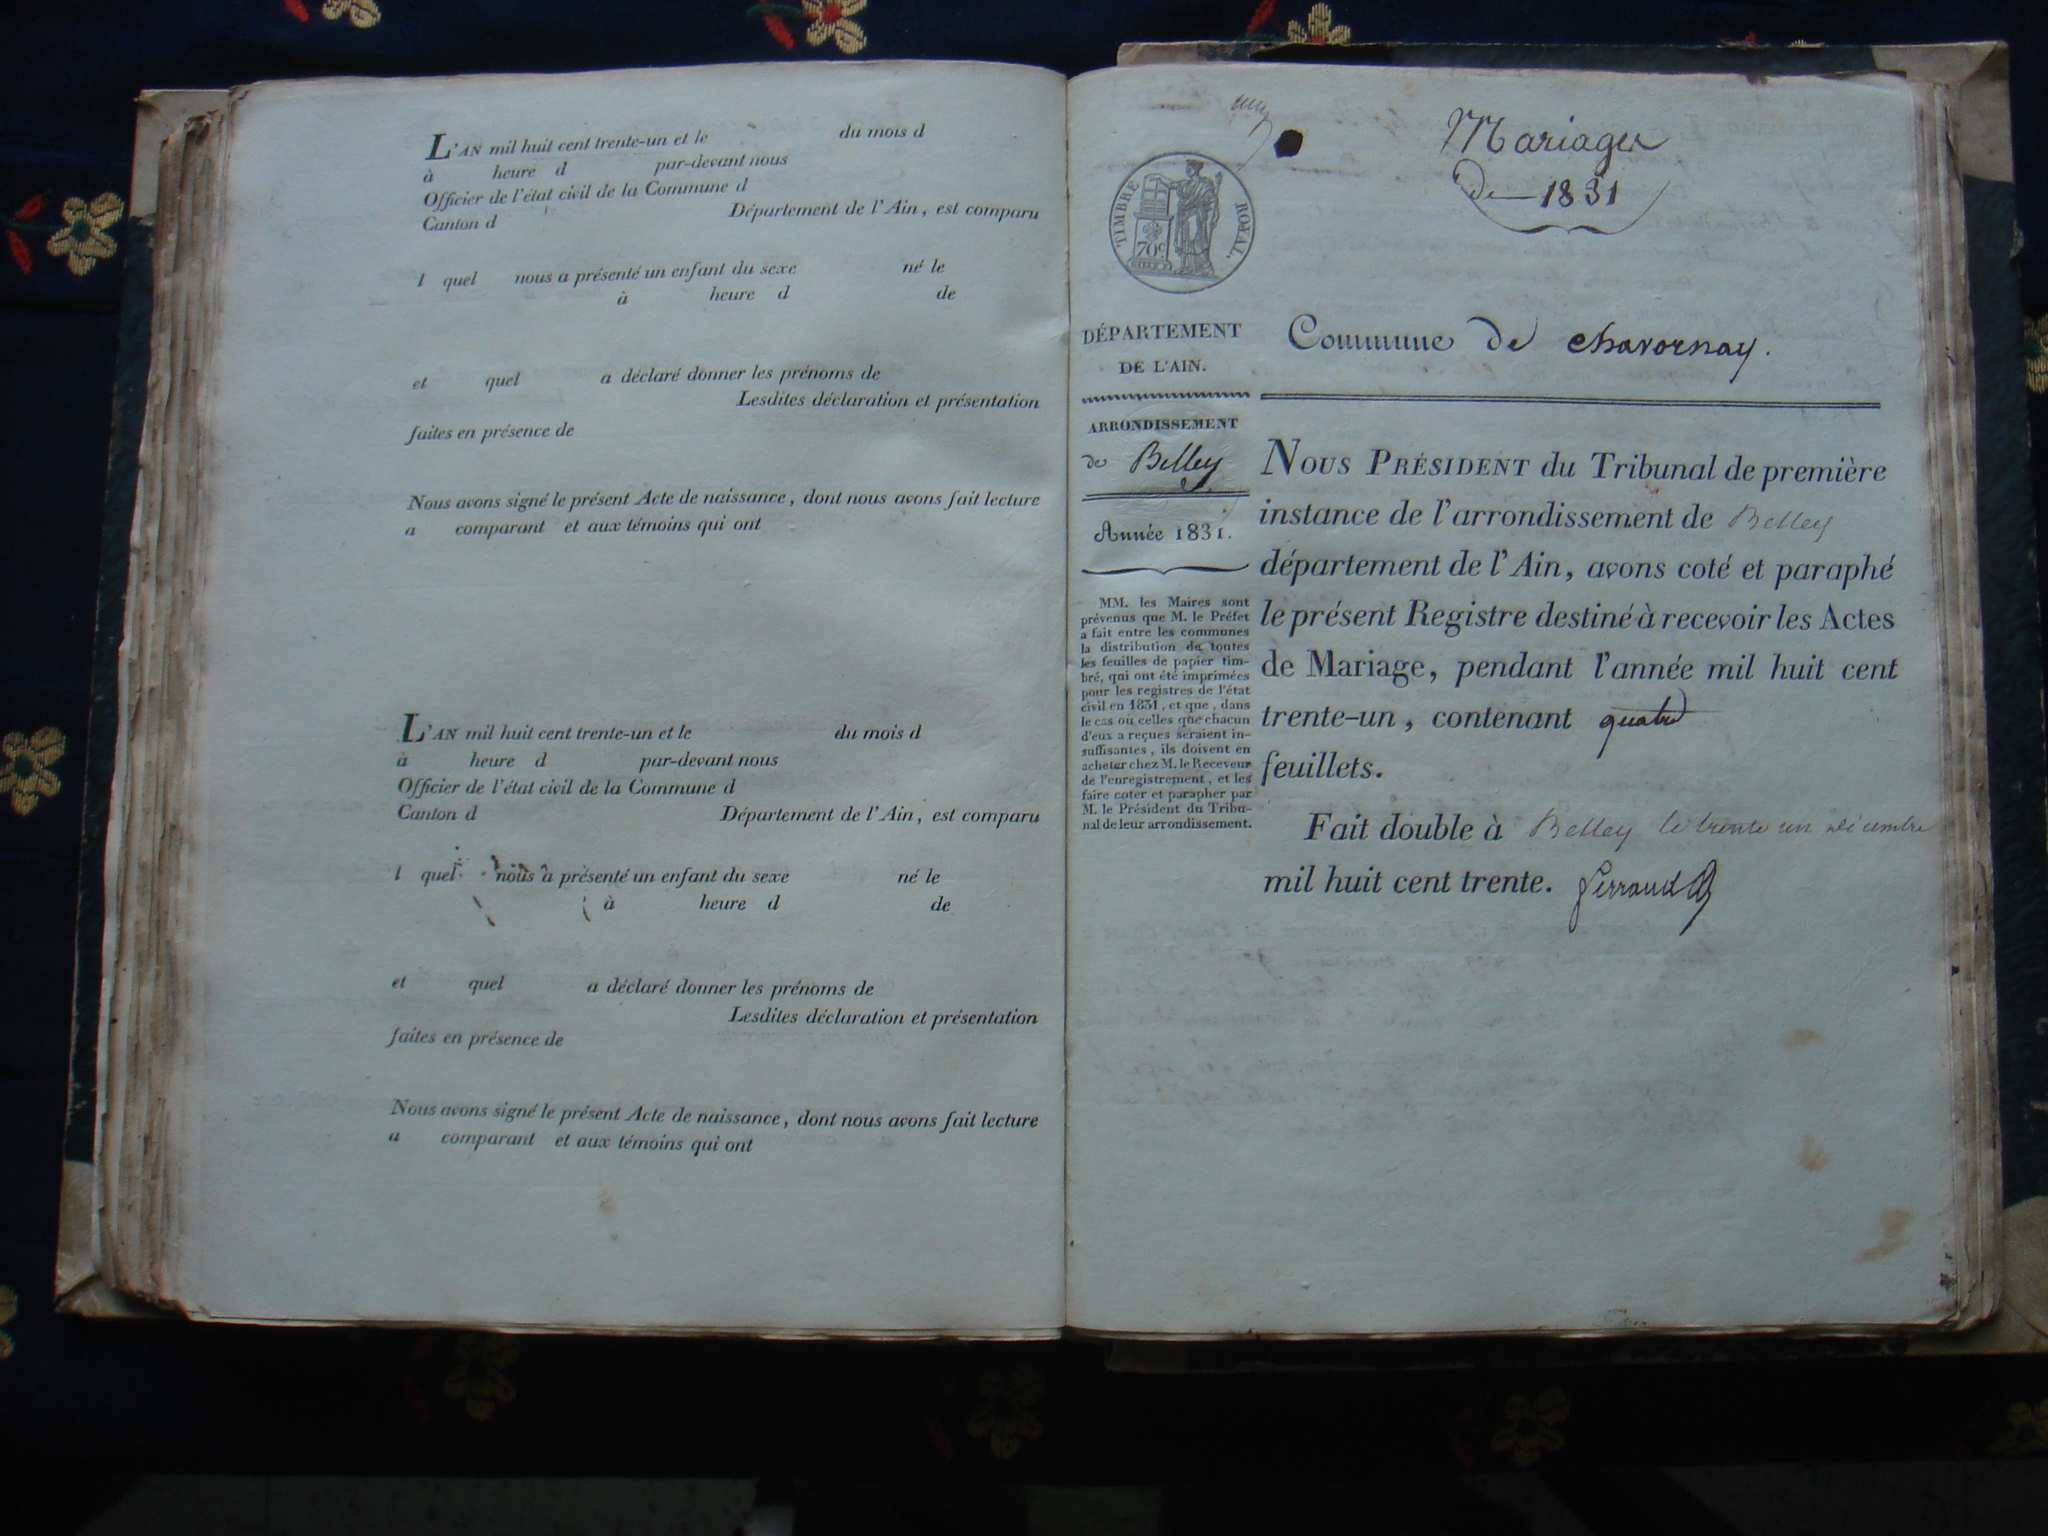 L'AN mil huit cent trente-un et le du mois d
à heure d par-devant nous
Officier de l'état civil de la Commune d
Canton d Département de l'Ain, est comparu
l quel nous a présenté un enfant du sexe né le
à heure d de
et quel a déclaré donner les prénoms de
Lesdites déclaration et présentation
faites en présence de
Nous avons signé le présent Acte de naissance, dont nous avons fait lecture
a comparant et aux témoins qui ont
L'AN mil huit cent trente-un et le du mois d
à heure d par-devant nous
Officier de l'état civil de la Commune d
Canton d Département de l'Ain, est comparu
l quel nous a présenté un enfant du sexe né le
à heure d de
et quel a déclaré donner les prénoms de
Lesdites déclaration et présentation
faites en présence de
Nous avons signé le présent Acte de naissance, dont nous avons fait lecture
a comparant et aux témoins qui ont
Mariages
de 1831
TIMBRE ROYAL
70c
DÉPARTEMENT
DE L'AIN.
ARRONDISSEMENT
de Belley
Année 1831.
MM. les Maires sont
prévenus que M. le Préfet
a fait entre les communes
la distribution de toutes
les feuilles de papier tim-
bré, qui ont été imprimées
pour les registres de l'état
civil en 1831, et que, dans
le cas où celles que chacun
d'eux a reçues seraient in-
suffisantes, ils doivent en
acheter chez M. le Receveur
de l'enregistrement, et les
faire coter et parapher par
M. le Président du Tribu-
nal de leur arrondissement.
Commune de chavornay.
NOUS PRÉSIDENT du Tribunal de première
instance de l'arrondissement de Belley
département de l'Ain, avons coté et paraphé
le présent Registre destiné à recevoir les Actes
de Mariage, pendant l'année mil huit cent
trente-un, contenant quatre
feuillets.
Fait double à Belley le trente un décembre
mil huit cent trente.